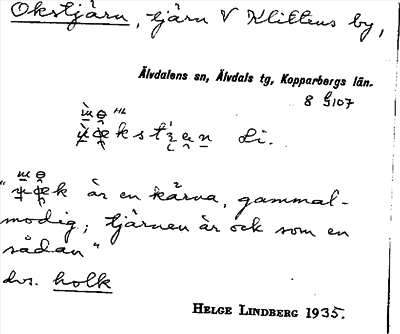 Okstjärn, tjärn V Klittens by,
Älvdalens sn, Älvdals tg, Kopparbergs län.
8 G 107
Li.
är en kärna, gammal-
modig; tjärnen är ock som en
sådan"
dvs. holk
HELGE LINDBERG 1935.